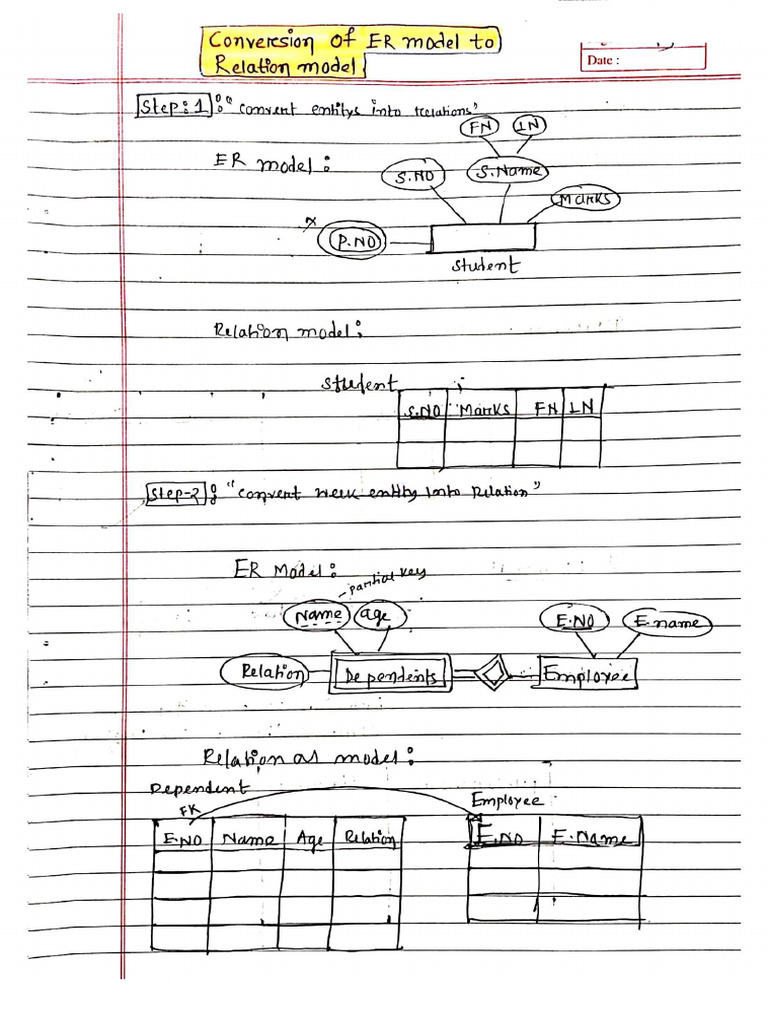 Conversion of ER model to
Relation model
Date :
Step:1 : "convert entitys into Relations"
FN LN
ER model :
S.NO S.Name
Marks
P.NO
Student
Relation model :
Student
S.NO Marks FN LN
Step-2 : "convert week entity into Relation"
ER Model :
-partial key
Name Age E.NO E.name
Relation Dependents Employee
Relation as model :
Dependent
Employee
FK
E.NO Name Age Relation E.NO E.Name